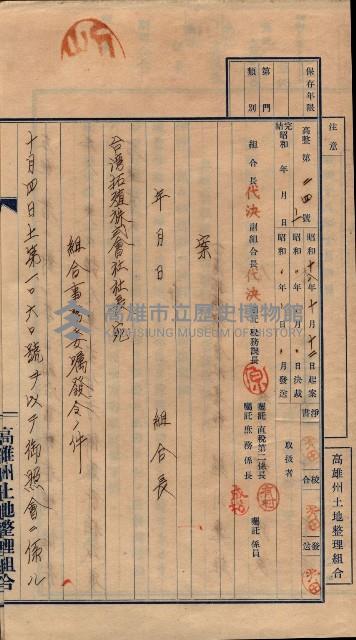 保存年限
第 門
類 別
注意
高整第二四號ノ一
昭和十六年十月十二日起案
昭和 年 月 日決裁
昭和 年 月 日發送
完結 昭和 年 月 日
淨書
校合
發送
取扱者
組合長 代決
副組合長 代決
稅務課長
囑託 直稅第二係長
囑託 庶務係長
囑託 係員
案
年 月 日
組合長
台灣拓殖株式會社社長宛
組合事務委囑發令ノ件
十月四日土第一〇六〇號ヲ以テ御照會ニ係ル
高雄州土地整理組合
高雄州土地整理組合
高雄市立歷史博物館
KAOHSIUNG MUSEUM OF HISTORY